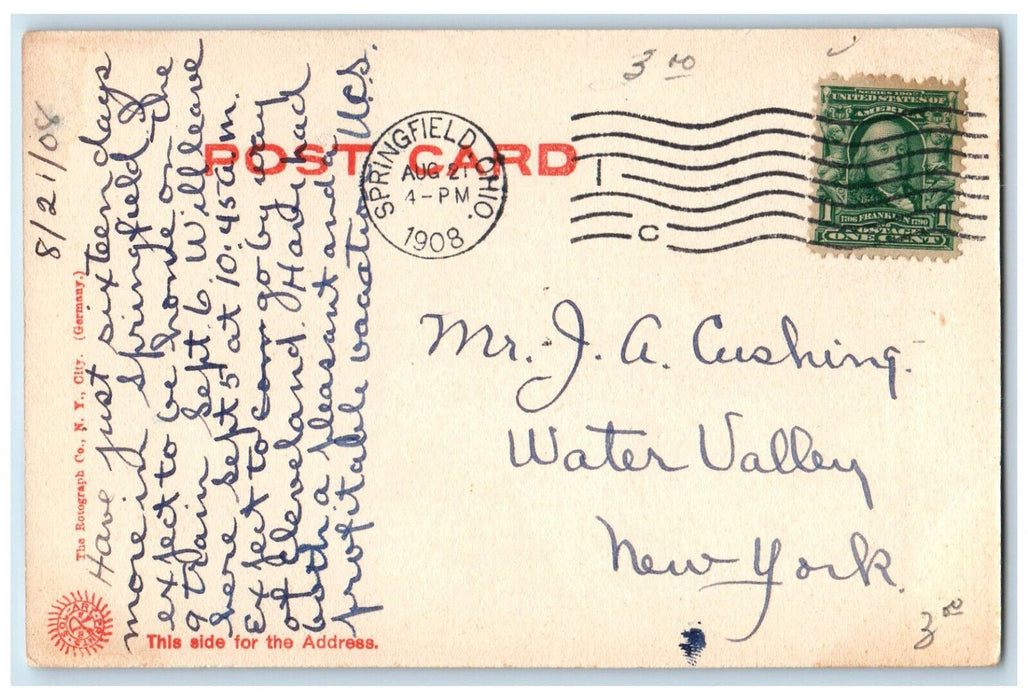 8/21/08
Have just sixteen days
more in Springfield. I
expect to be home on the
9 train Sept. 6 Will leave
here Sept 5 at 10:45 a.m.
Expect to com go by way
of Cleveland. Have had
both a pleasant and a
profitable vacation. U.C.S.
The Rotograph Co., N. Y., City. (Germany.)
POST CARD
This side for the Address.
SPRINGFIELD, OHIO.
AUG 21
4-PM
1908
1
C
3 00
SERIES 1902
UNITED STATES OF
AMERICA
1706 FRANKLIN 1790
POSTAGE
1 1
ONE CENT
Mr. J. A. Cushing.
Water Valley
New York.
3 00